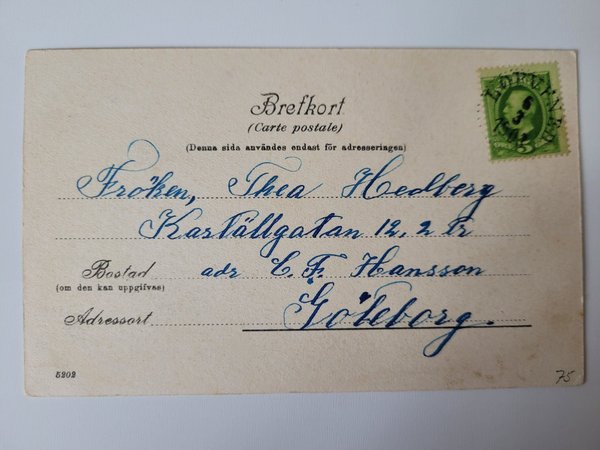 Brefkort
(Carte postale)
(Denna sida användes endast för adresseringen)
Fröken, Thea Hedberg
Karställgatan 12, 2 tr
Bostad adr C. F. Hansson
(om den kan uppgifvas)
Göteborg.
Adressort
5202
75
6
3
5